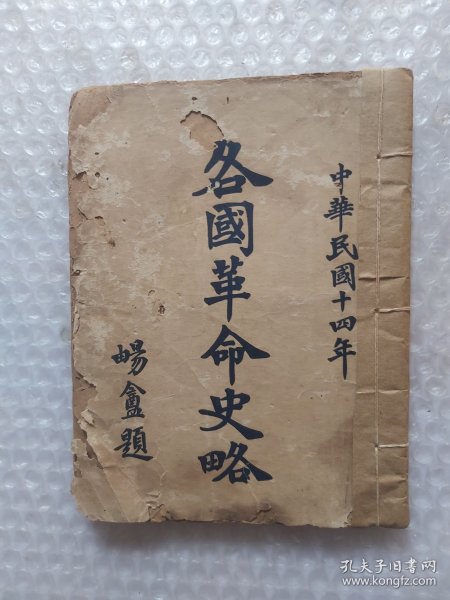 中華民國十四年
各國革命史略
暢盦題
孔夫子旧书网
www.kongfz.com